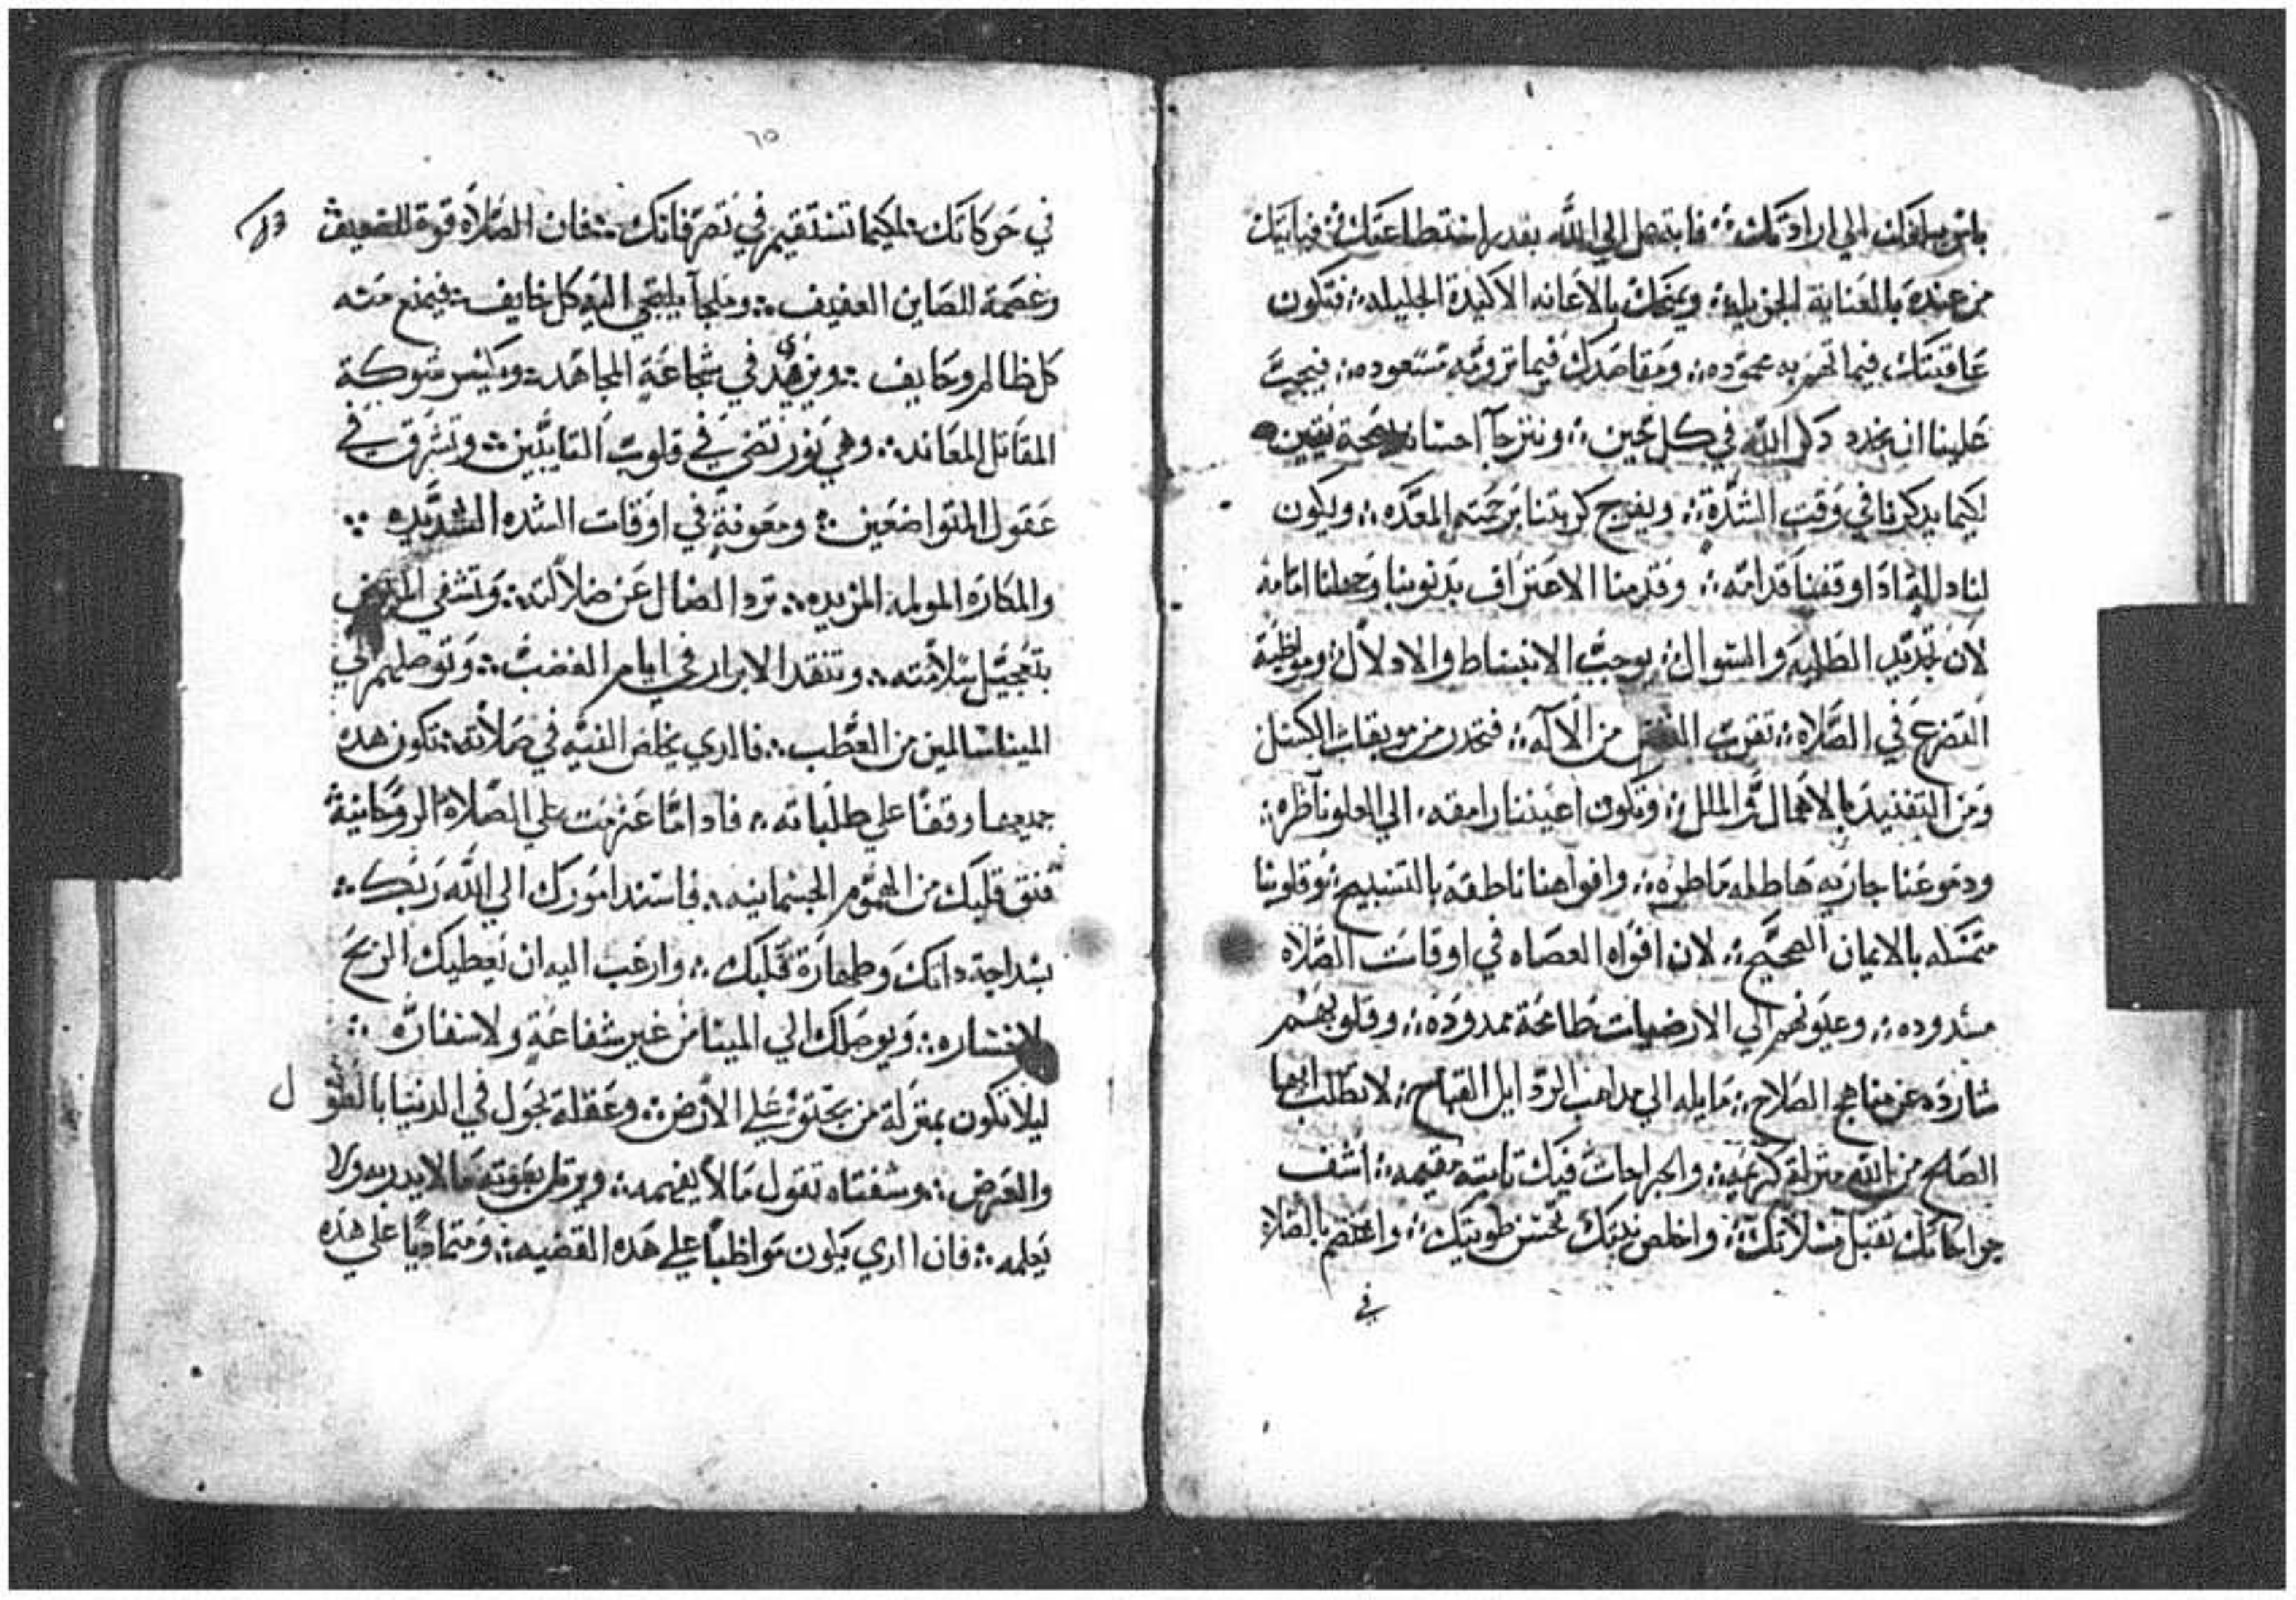 الي ارادتك ∴ فابتهل الي الله بقدر استطاعتك ∴ فياتيك
من عنده بالعناية الجزيله ∴ ويمدك بالاعانه الاكيدة الجليله ∴ فتكون
عاقبتك فيما تهم به محموده ∴ ومقاصدك فيما ترومه مسعوده ∴ فيجب
علينا ان نجدد ذكر الله في كل حين ∴ ونترجا احسانه
لكيما يدكرنا في وقت الشدة ∴ ويفرج كربتنا برحمته المعده ∴ ويكون
لنا اذا وقفنا قدامه ∴ وقدمنا الاعتراف بدنوبنا وجعلنا امامه
لان تجديد الطلبه والسوال ∴ يوجب الانبساط والادلال ∴ ومواظبة
التضرع في الصلاه ∴ تقرب من الاله ∴ فتحدر من موبقات الكسل
ومن التفنيد بالاهمال والملل ∴ وتكون اعيننا رامقه الي العلو ناظره ∴
ودموعنا جاريه هاطله ماطره ∴ وافواهنا ناطقة بالتسبيح ∴ وقلوبنا
متمسكه بالايمان الصحيح ∴ لان افواه العصاه في اوقات الصلاه
مسدوده ∴ وعيونهم الي الارضيات طامحة ممدوده ∴ وقلوبهم
شارده عن مناهج الصلاح ∴ مايله الي مداهب الردايل القباح ∴ لا تطلب ايها
الصالح من الله منزلة كريمه ∴ والجراحات فيك تابته مقيمه ∴ اشف
جراحاتك تقبل مسلاتك ∴ واخلص نيتك تحسن طويتك ∴ واعتصم بالصلاه
في
٦٥
في حركاتك ∴ لكيما تستقيم في تصرفاتك ∴ فان الصلاه قوة للضعيف
وعصمة للصاين العفيف ∴ وملجأ يلتجي اليه كل خايف ∴ فيمنع منه
كل ظالم وحايف ∴ ويزيد في شجاعة المجاهد ∴ ويكسر شوكة
المقاتل المعاند ∴ وهي نور تضي في قلوب التايبين ∴ وتشرق في
عقول المتواضعين ∴ ومعونة في اوقات الشده الشديده ∴
والمكاره المولمه المزيده ∴ ترد الضال عن ضلالته ∴ وتشفي المريض
بتعجيل سلامته ∴ وتنقد الابرار في ايام الغضب ∴ وتوصلهم الي
المينا سالمين من العطب ∴ فالدي يخلص النيه في صلاته ∴ تكون هده
جميعها وقفا علي طلباته ∴ فادا ما عزمت علي الصلاة الروحانية
فنق قلبك من الهموم الجسمانيه ∴ فاسند امورك الي الله ربك ∴
بسداجة داتك وطهارة قلبك ∴ وارغب اليه ان يعطيك الربح
لا خساره ∴ ويوصلك الي المينا من غير شفاعة ولا سفاره ∴
ليلا تكون بمنزلة من يجتو علي الارض ∴ وعقله يجول في الدنيا بالطول
والعرض ∴ وشفتاه تقول ما لا يفهمه ∴ ويرتل بصوته ما لا يدريه ولا
يعلمه ∴ فان الدي يكون مواظبا علي هده القضيه ∴ ومتماديا علي هده